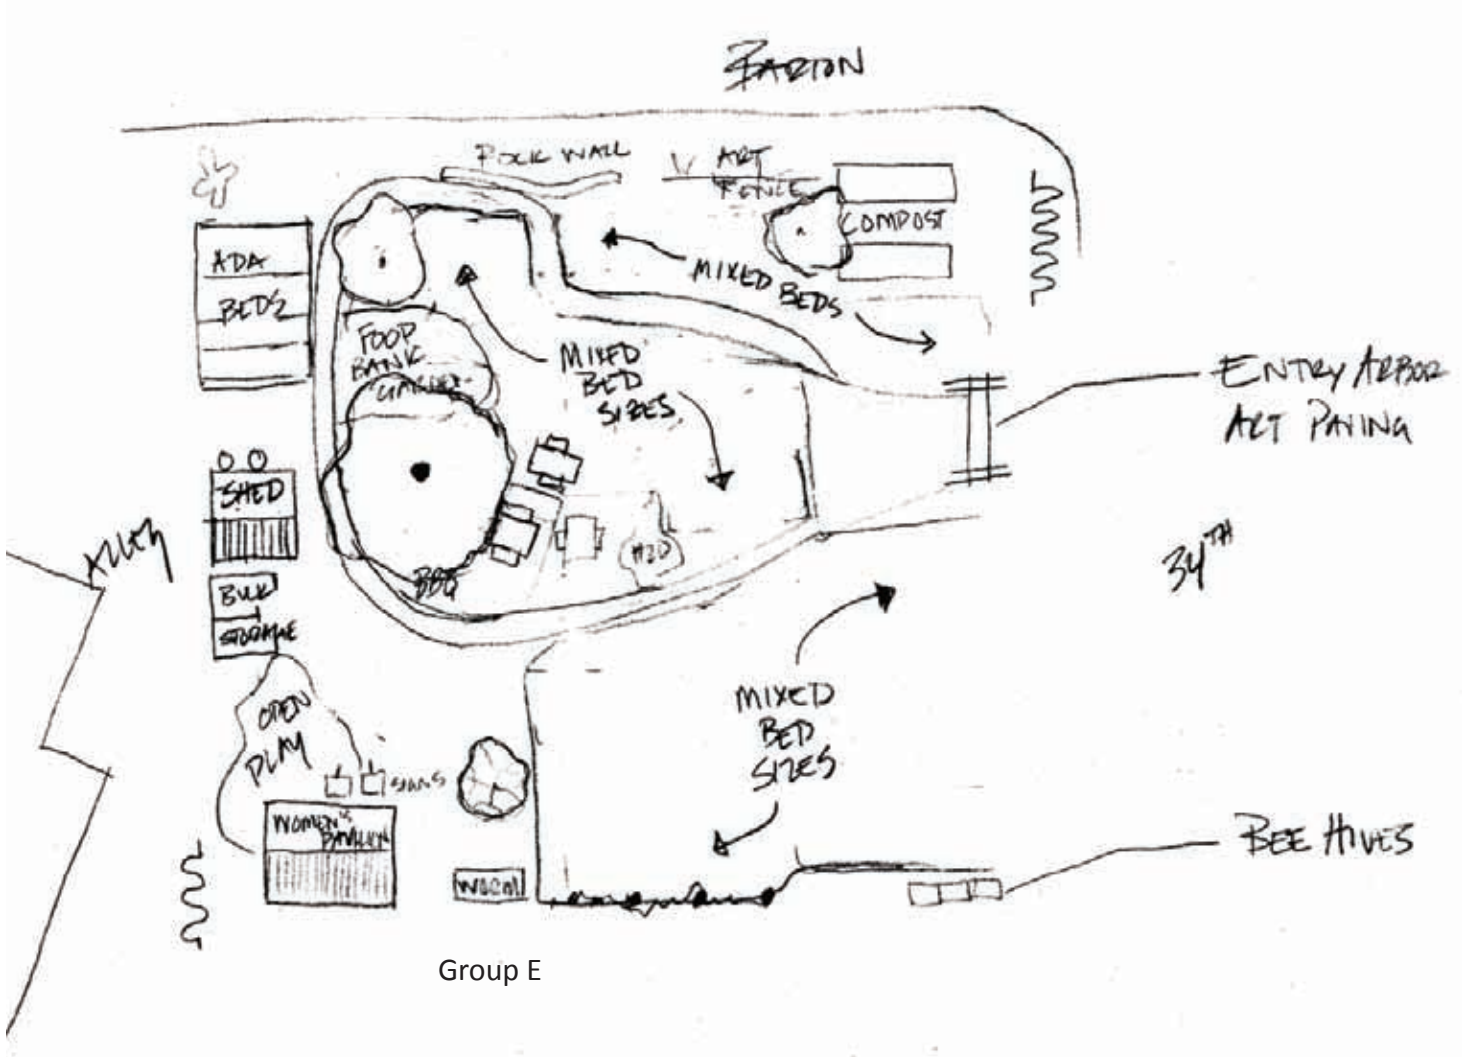 BARTON
ROCK WALL
ART
FENCE
COMPOST
MIXED BEDS
ADA
BEDS
FOOD
BANK
GARDEN
MIXED
BED
SIZES
ENTRY ARBOR
ART PAVING
SHED
ALLEY
H2O
34TH
BBQ
BULK
STORAGE
OPEN
PLAY
MIXED
BED
SIZES
WOMEN'S
PAVILION
WORM
BEE HIVES
Group E